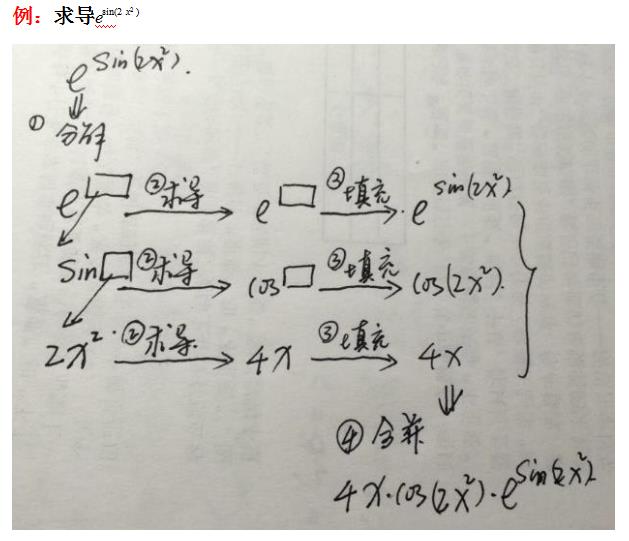 例：求导e^sin(2 x²)
e^Sin(2x²).
⇓
① 分解
e^□ ②求导 e^□ ③填充 e^sin(2x²)
Sin□ ②求导 cos□ ③填充 cos(2x²).
2x² ②求导 4x ③填充 4x
⇓
④ 合并
4x·cos(2x²)·e^Sin(2x²)